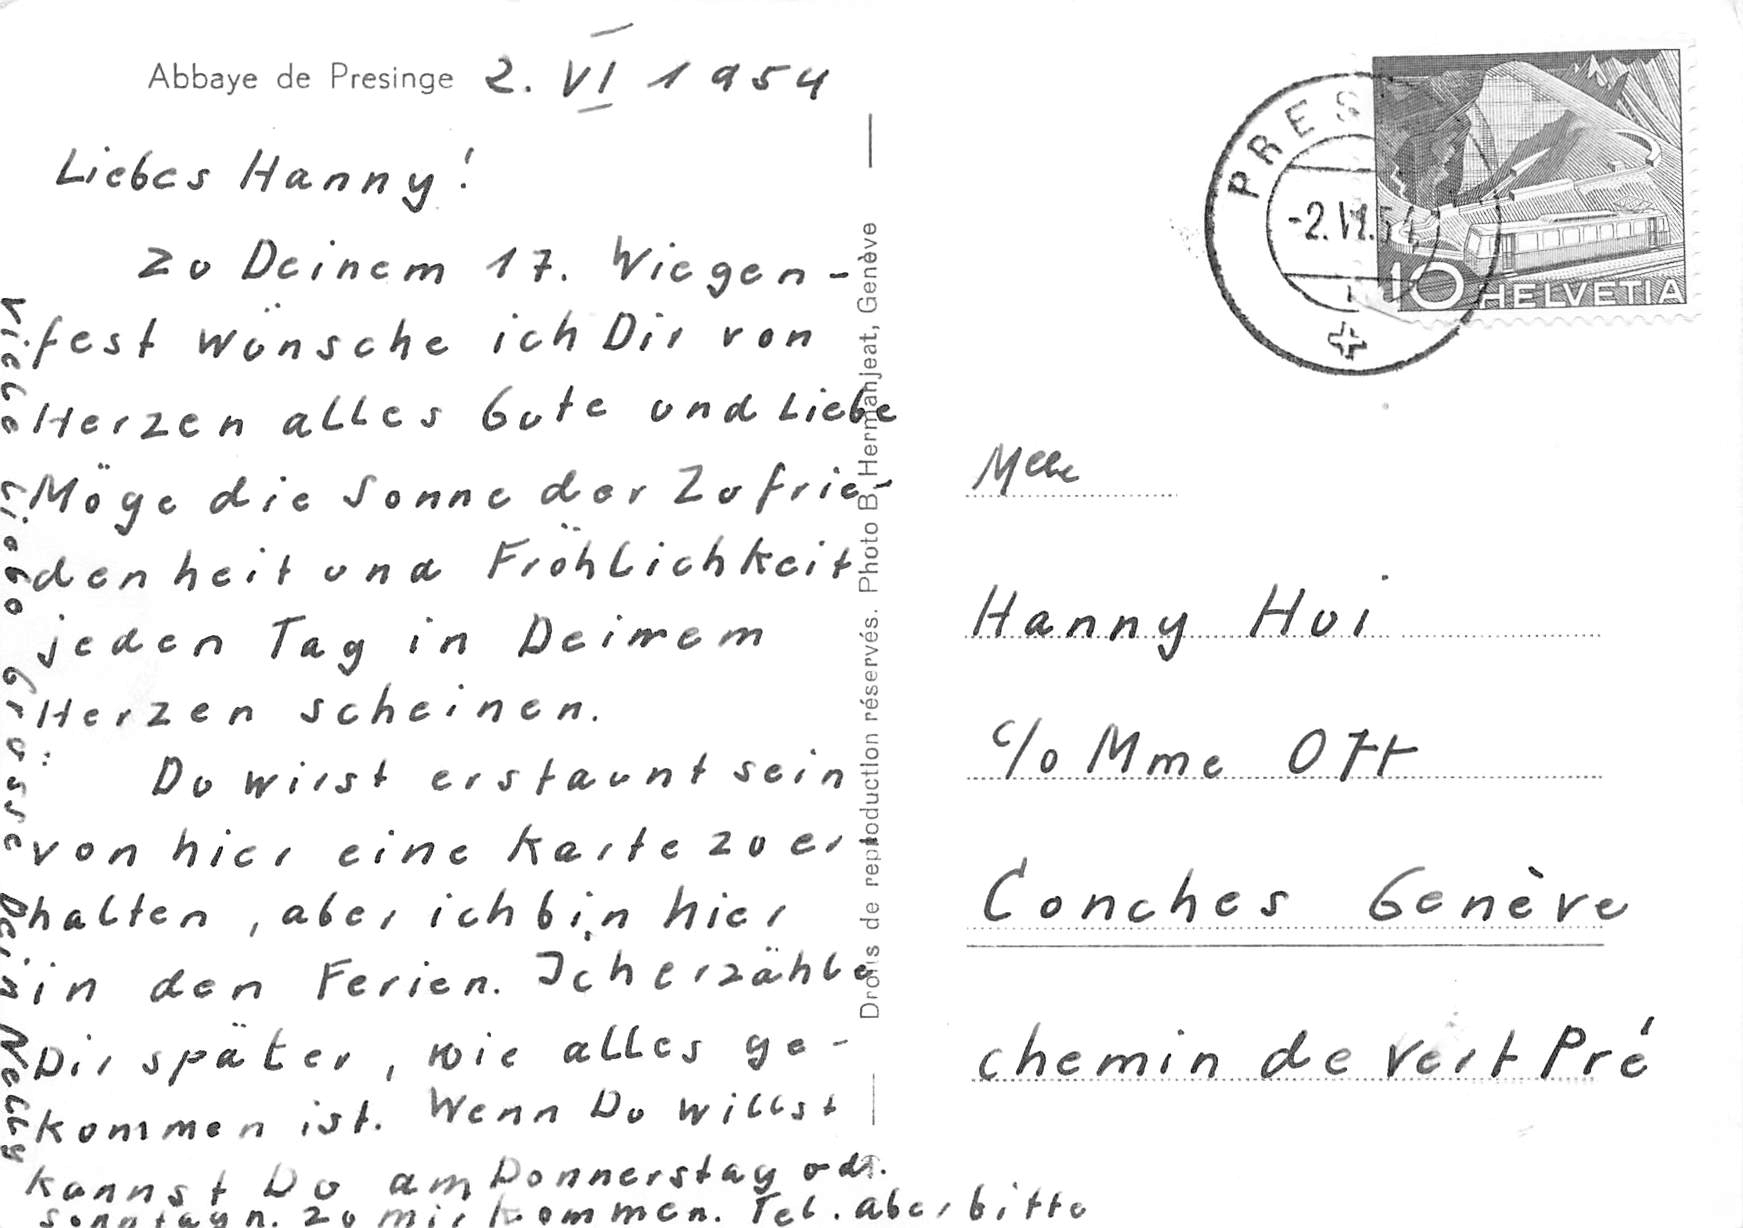 Abbaye de Presinge 2. VI 1954
Liebes Hanny!
Zu Deinem 17. Wiegen-
fest wünsche ich Dir von
Herzen alles Gute und Liebe
Möge die Sonne der Zufrie-
denheit und Fröhlichkeit
jeden Tag in Deinem
Herzen scheinen.
Du wirst erstaunt sein
von hier eine Karte zu er
halten, aber ich bin hier
in den Ferien. Ich erzähle
Dir später, wie alles ge-
kommen ist. Wenn Du willst
kannst Du am Donnerstag od.
Sonntag n. zu mir kommen. Tel. aber bitte
Viele liebe Grüsse Dein Nelly
Droits de reproduction réservés. Photo B. Hermanjeat, Genève
PRES
-2.VI.54
10 HELVETIA
Mlle
Hanny Hui
c/o Mme Ott
Conches Genève
chemin de Vert Pré